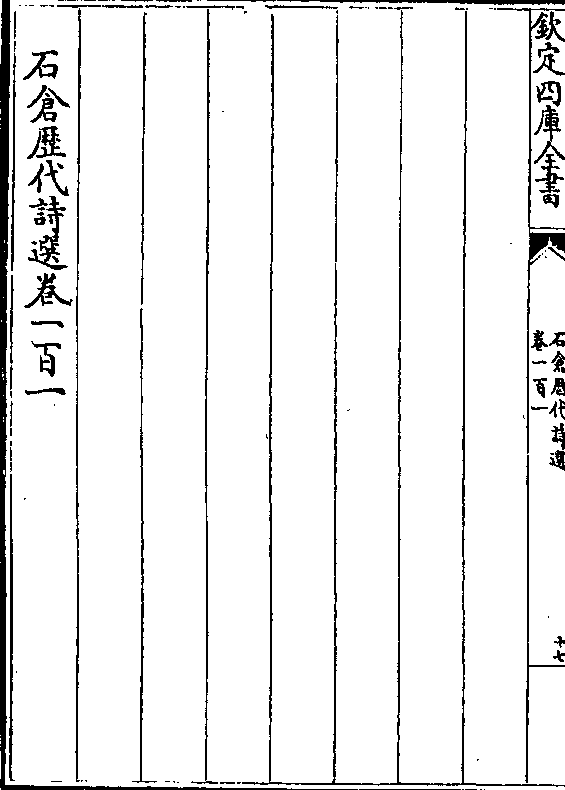 欽定四庫全書
石倉歷代詩選
卷一百一
十七
石倉歷代詩選卷一百一